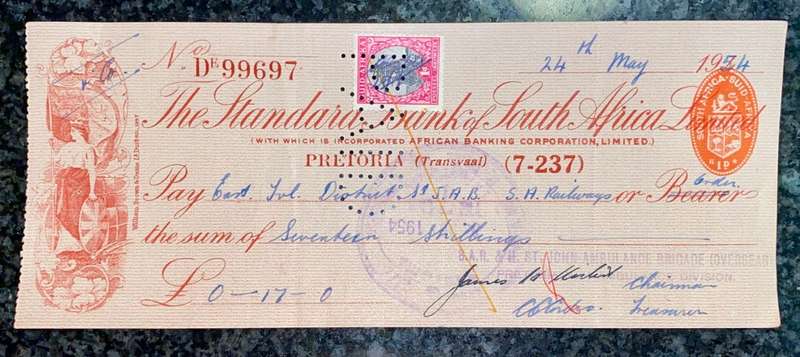 Nº DE 99697
24th May 1954
The Standard Bank of South Africa Limited
(WITH WHICH IS INCORPORATED AFRICAN BANKING CORPORATION, LIMITED.)
PRETORIA (Transvaal) (7-237)
SOUTH AFRICA · SUID-AFRIKA
1D
Pay East Tvl. District Nº S.A.B. S.A. Railways or Bearer Order
the sum of Seventeen Shillings
1954
S.A.R. & H. ST. JOHN AMBULANCE BRIGADE (OVERSEAS)
DIVISION.
£ 0-17-0
James
Chairman
Treasurer